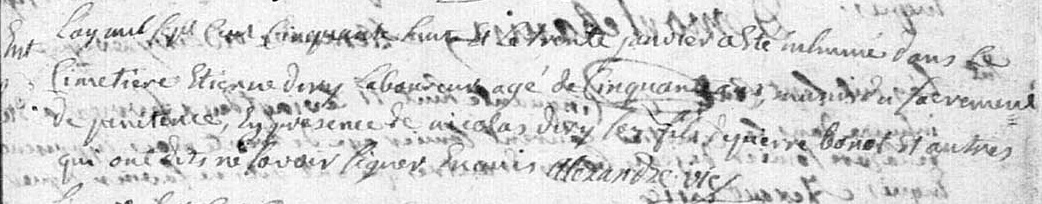 Ent Lan mil sept cent cinquante huit et le trente janvier a eté inhumé dans le
cimetiere Etienne diry laboureur agé de cinquante ans, munis du sacrement
de penitence, en presence de nicolas diry son fils, de pierre bonot et autres
qui ont dits ne savoir signer Alexandre vic